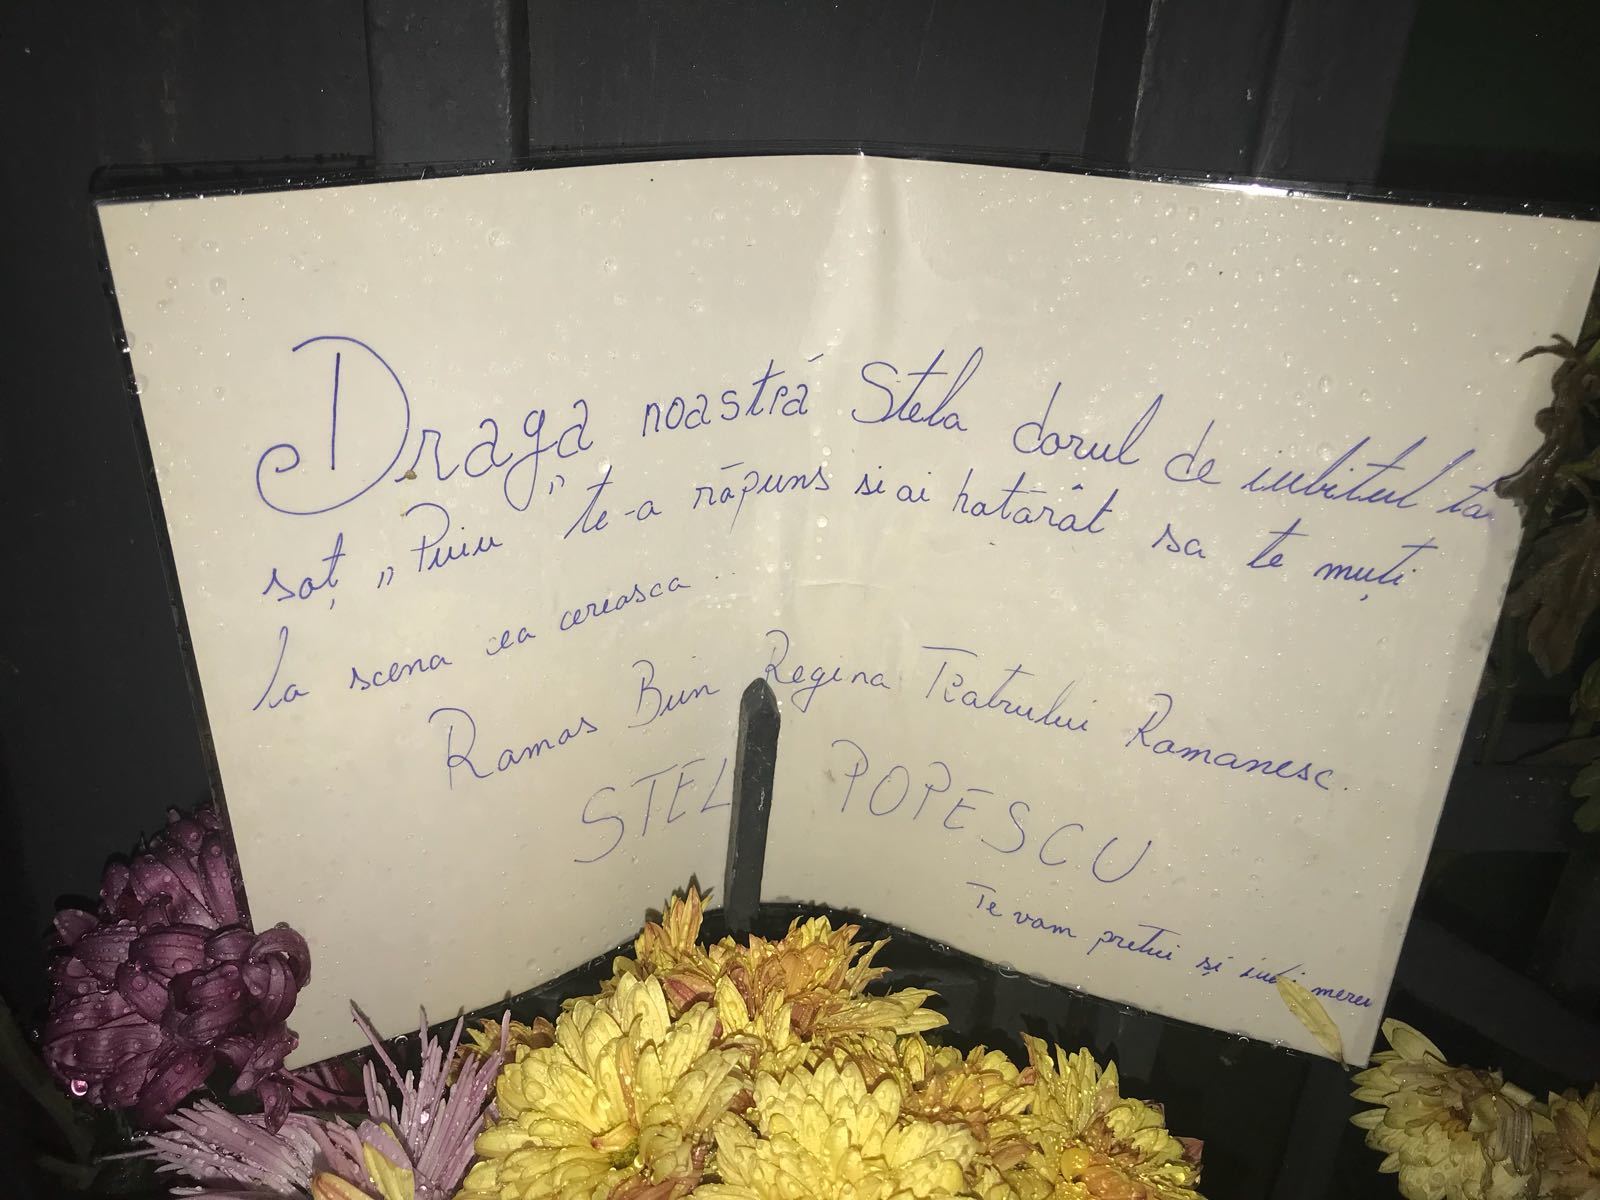 Draga noastră Stela dorul de iubitul
soț „Puiu” te-a răpuns si ai hatărât sa te muți
la scena cea cereasca...
Ramas Bun Regina Teatrului Romanesc.
STEL POPESCU
Te vom pretui și iubi mereu